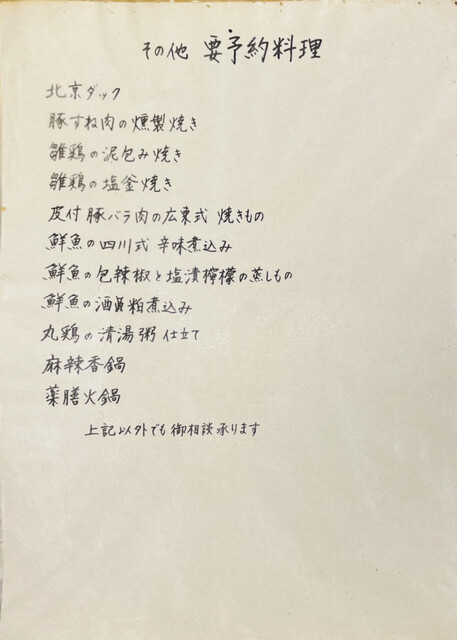 その他 要予約料理
北京ダック
豚すね肉の燻製焼き
雛鶏の泥包み焼き
雛鶏の塩釜焼き
皮付豚バラ肉の広東式 焼きもの
鮮魚の四川式 辛味煮込み
鮮魚の包辣椒と塩漬檸檬の蒸しもの
鮮魚の酒粕煮込み
丸鶏の清湯粥 仕立て
麻辣香鍋
薬膳火鍋
上記以外でも御相談承ります